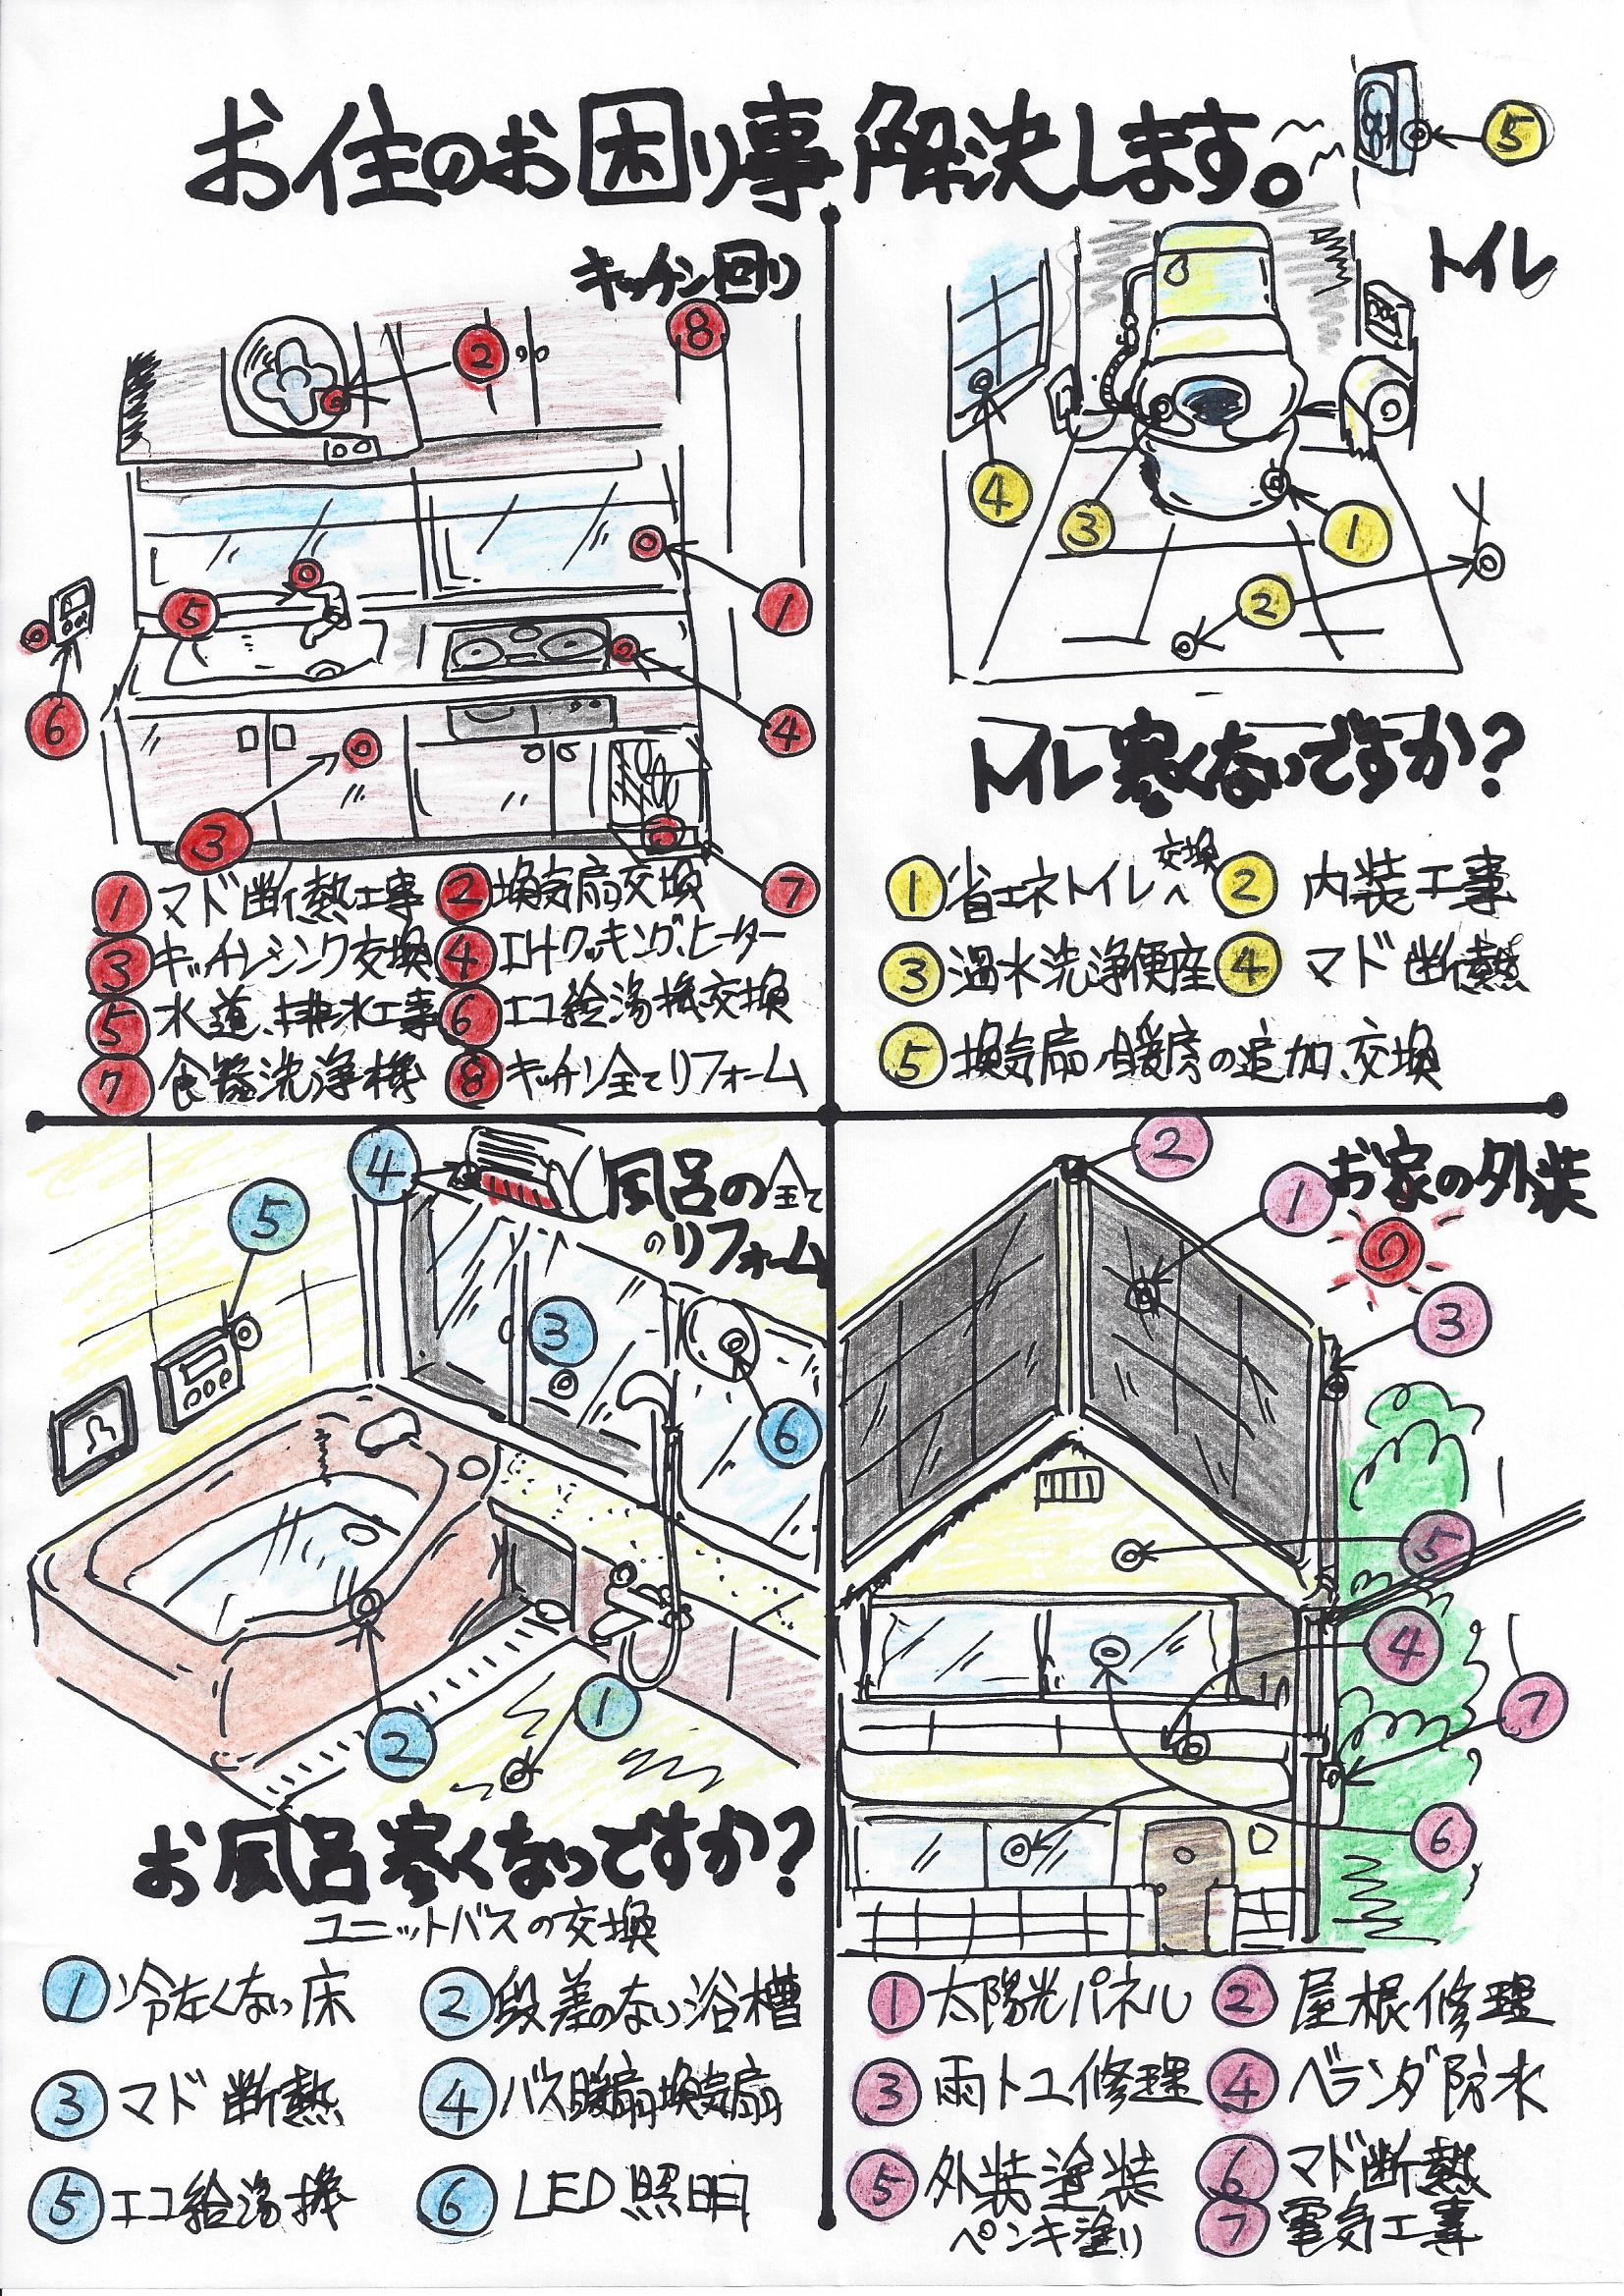 お住のお困り事解決します。
⑤
キッチン回り
⑧
②
①
⑤
⑥
④
③
⑦
①マド断熱工事 ②換気扇交換
③キッチンシンク交換 ④IHクッキングヒーター
⑤水道、排水工事 ⑥エコ給湯機交換
⑦食器洗浄機 ⑧キッチン全てリフォーム
トイレ
④
③
①
②
トイレ寒くないですか?
①省エネトイレへ交換 ②内装工事
③温水洗浄便座 ④マド断熱
⑤換気扇、暖房の追加、交換
風呂の全て
のリフォーム
④
⑤
③
⑥
①
②
お風呂寒くないですか?
ユニットバスの交換
①冷たくない床 ②段差のない浴槽
③マド断熱 ④バス暖房換気扇
⑤エコ給湯機 ⑥LED照明
お家の外装
②
①
③
⑤
④
⑦
⑥
①太陽光パネル ②屋根修理
③雨トユ修理 ④ベランダ防水
⑤外装塗装 ⑥マド断熱
ペンキ塗り ⑦電気工事